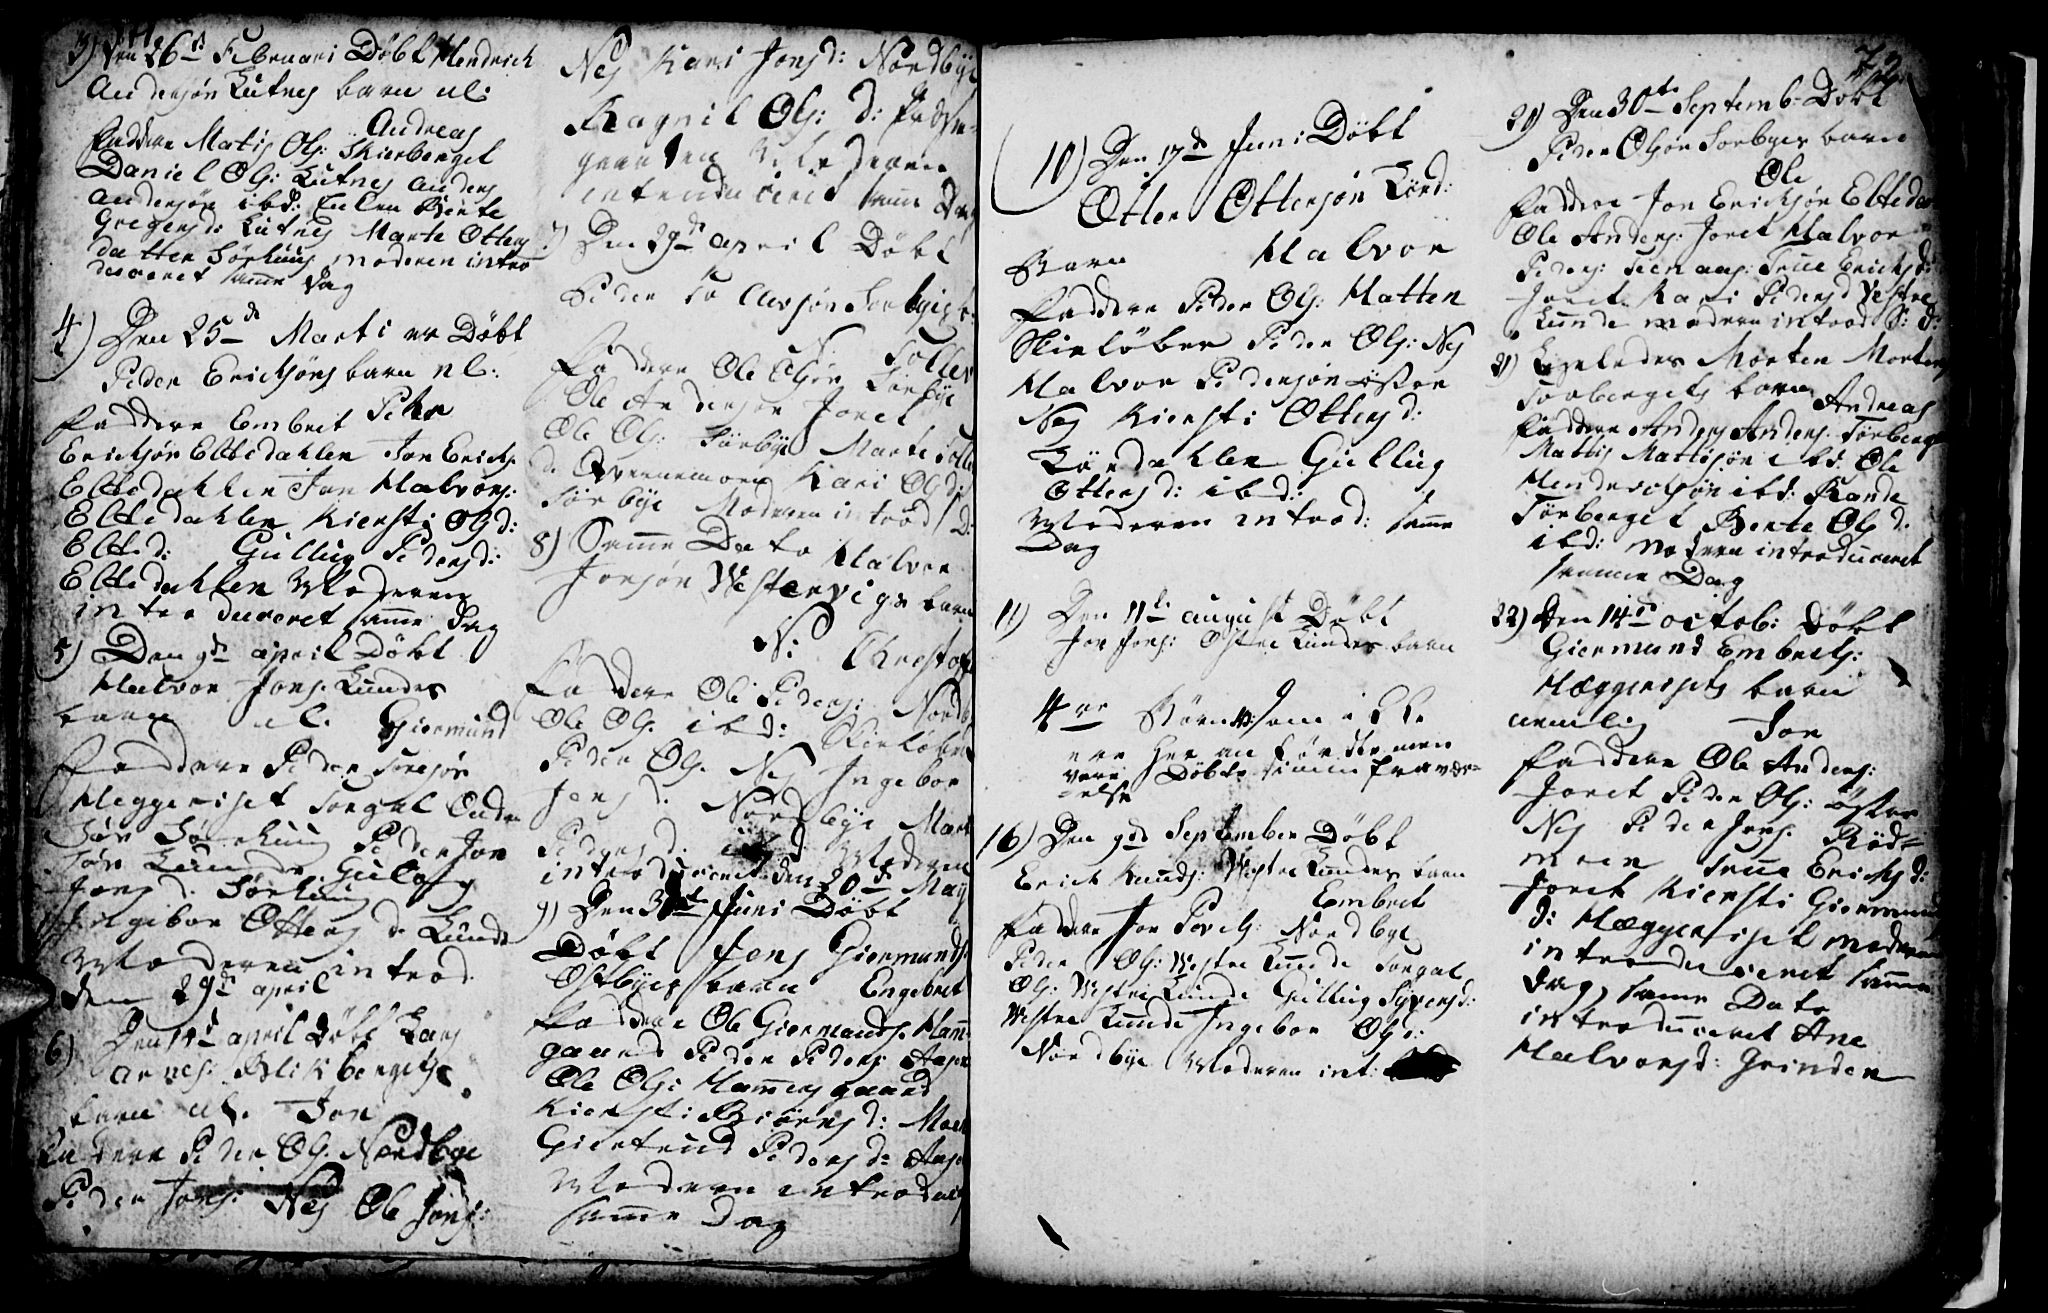 3) Den 26de Februari Døbt Hendrich
Andersøn Lutnes barn nl:
Andreas
Faddere Matis Ols: Skierberget
Daniel Ols: Lutnes Anders
Andersøn ibd: Berte
Gregersd: Lutnes Marte Otters
datter Sørhuus moderen intro
duceret samme Dag
4) Den 25de Marti er Døbt
Peder Ericksøns barn nl:
Peder
Faddere Embret
Ericksøn Eltedahlen Jon Ericks.
Eltedahlen Jon Halvors:
Eltedahlen Kiersti Olsd:
Elted: Gullug Pedersd:
Eltedahlen Moderen
introduceret samme Dag
5) Den 9de april Døbt
Halvor Jons. Lundes
barn nl. Giermund
Faddere Peder
Heggeriset Torgal
Søn Sørhuus Peder Jon
søn Lunde Gulog
Jonsd: Sørhuus
Ingebor Ottersd: Lunde
Moderen introd:
den 29de april
6) Den 14de april Døbt Lars
Arnes: Blikbergets
barn nl. Jon
Faddere Peder Ols. Nordbye
Peder Jons: Nes Ole Jons:
Nes Kari Jonsd: Nordbye
Ragnil Ols: d:
gaarden Moderen
introduceret samme Dag
7) Den 29de april Døbt
Peder Tollevsøn Sorbyes b:
N. Tollev
Faddere Ole Olsøn Sørbye
Ole Andersøn Joret
Ole Ols: Sørbye Marte Tolle
d: Qvernemoen Kari Olsd:
Sørbye Moderen introd S: D:
8) Samme Dato Halvor
Jonsøn Westervigs barn
N: Christof
Faddere Ole Peders: Nordb
Ole Ols. ibd: Skieløber
Peder Ols. Nes Ingebor
Jonsd: Nordbye Mart
Pedersd: ibd Moderen
introduceret den 20de May
9) Den 3de Juni Døbt
Døbt Jens Giermunds.
Østbyes barn Engebret
Faddere Ole Giermunds. Ham
gaard Peder Peders:
Ole Ols: Hammersgaard
Kiersti Biørnsd: Moe
Giertrud Pedersd:
Moderen introduc
samme Dag
72
10) Den 17de Juni Døbt
Otter Ottersøn Lørd:
Barn Halvor
Faddere Peder Ols: Hatten
Skieløber Peder Ols: Nes
Halvor Pedersøn Øster
Nes Kiersti Ottersd:
Lørdahlen Gullug
Ottersd: ibd:
Moderen introd: samme
Dag
11) Den 11te august Døbt
Jon Jons: Østre Lundes barn
4re Børn som ikke
ere her anførdte men
vare Døbte i min fravæ-
relse
16) Den 9de September Døbt
Erich Knuds: Westre Lundes barn
Embret
Faddere Jon Povels: Nordbye
Peder Ols: Westre Lunde Torgal
Ols: Westre Lunde Gullug Syversd:
Westre Lunde Ingebor Olsd:
Nordbye Moderen int:
20) Den 30te Septemb: Døbt
Peder Olsøn Sorbyes barn
Ole
Faddere Jon Ericksøn Eltedal
Ole Anders: Joret Halvor
Peders: Teenaas: True Ericksd:
Joret Kari Pedersd Westre
Lunde modern introd S: d:
21) Ligeledes Morten Mortens
Torbergets barn Andreas
Faddere Anders Anders: Tørberget
Mattis Mattisøn ibd: Ole
Hendrichsøn ibd: Rande
Tørberget Berte Olsd:
ibd: Moderen introduceret
samme Dag
22) Den 14de octob: Døbt
Giermund Embrets:
Hæggerisets barn
nemlig Jon
Faddere Ole Anders:
Joret Peder Ols: Øster
Nes Peder Jons. Rød-
moen True Ericksd:
Joret Kiersti Giermund
d: Hæggeriset moderen
introduceret samme
Dag, samme Dato
introduceret Ane
Halvorsd: Grinden